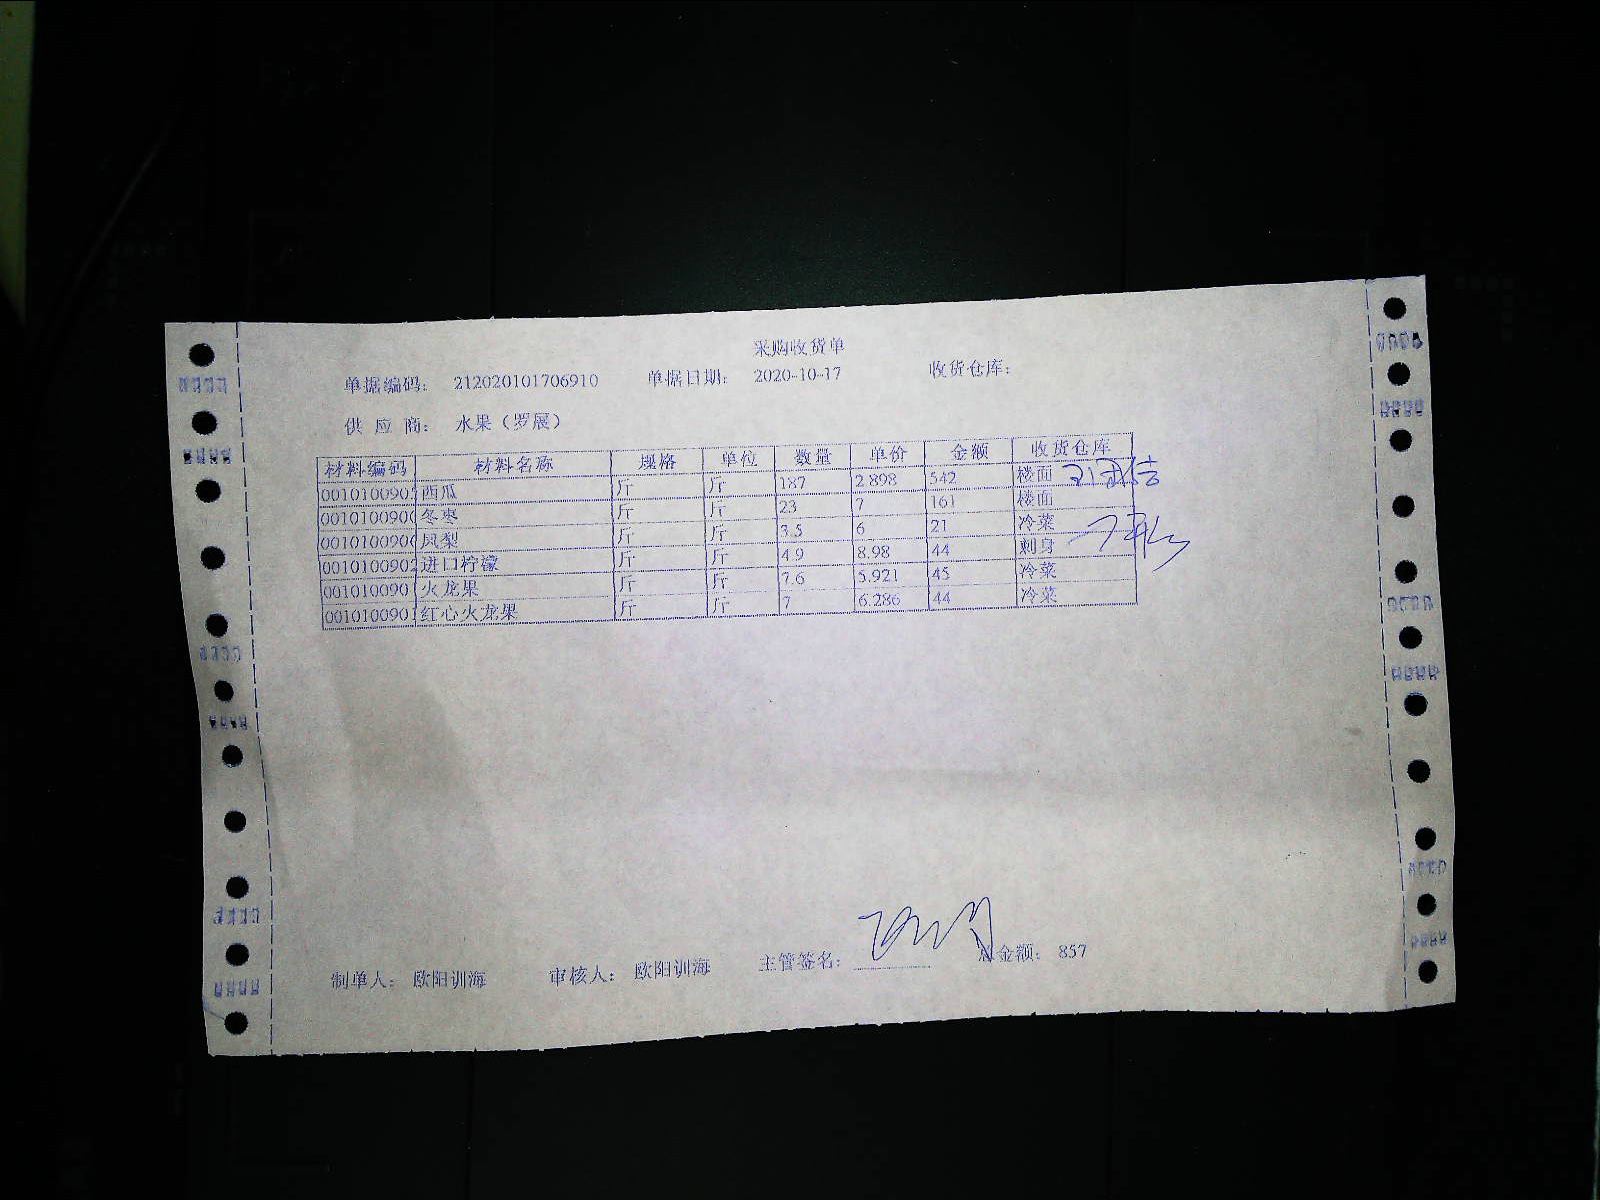 采购收货单
单据编码： 212020101706910 单据日期： 2020-10-17 收货仓库：
供 应 商： 水果（罗展）
材料编码 材料名称 规格 单位 数量 单价 金额 收货仓库
西瓜 斤 斤 187 2.898 542 楼面
冬枣 斤 斤 23 7 161 楼面
凤梨 斤 斤 3.5 6 21 冷菜
进口柠檬 斤 斤 4.9 8.98 44 刺身
火龙果 斤 斤 7.6 5.921 45 冷菜
红心火龙果 斤 斤 7 6.286 44 冷菜
制单人： 欧阳训海 审核人： 欧阳训海 主管签名： 总金额： 857